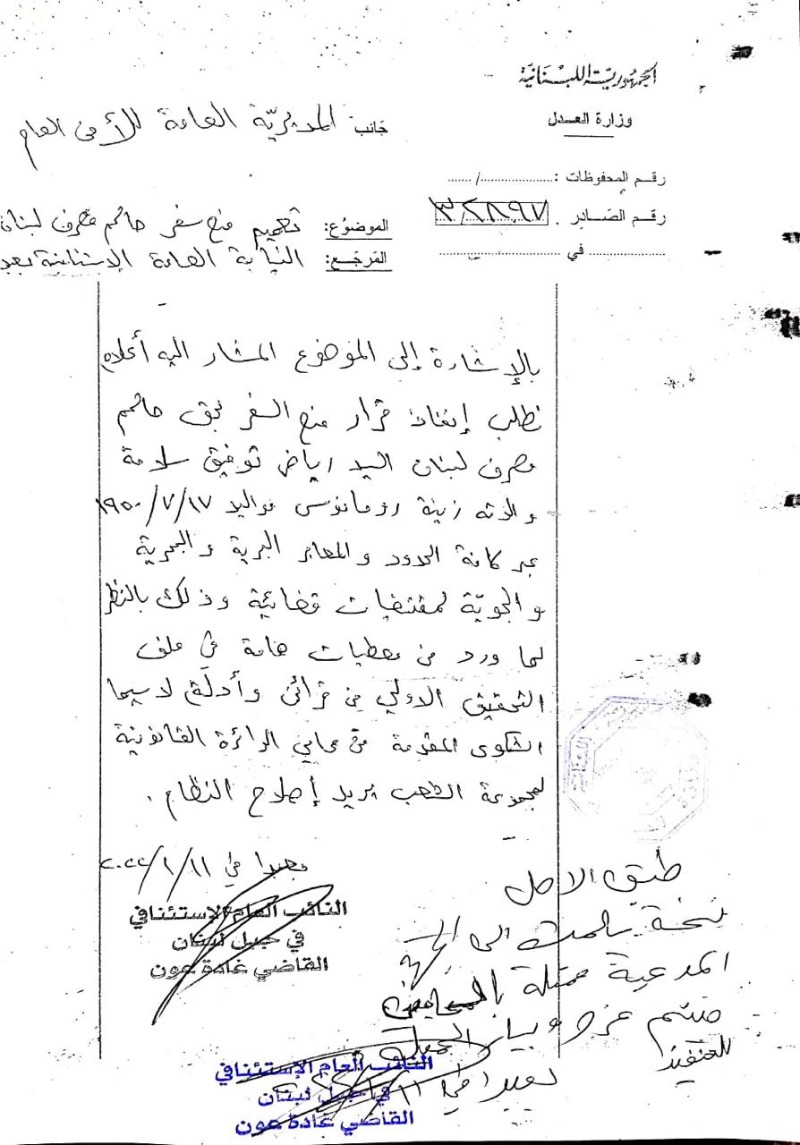 الجمهورية اللبنانية
وزارة العدل
جانب المديريّة العامة للأمن العام
رقم المحفوظات : ............/......
رقم الصادر ٣/٢٨٩٧
في
الموضوع: تعميم منع سفر حاكم مصرف لبنان
المرجع: النيابة العامة الإستئنافية بعبدا
بالإشارة إلى الموضوع المشار اليه أعلاه
نطلب إنفاذ قرار منع السفر بحق حاكم
مصرف لبنان السيد رياض توفيق سلامة
والدته زينة رومانوس مواليد ١٧/٧/١٩٥٠
عبر كافة الحدود والمعابر البرية والبحرية
والجويّة لمقتضيات قضائية وذلك بالنظر
لما ورد من معطيات هامة في ملف
التحقيق الاولي من قرائن وأدلّة لا سيما
الشكوى المقدمة من محامي الدائرة القانونية
لمجموعة الشعب يريد إصلاح النظام .
بعبدا في ١١/١/٢٠٢٢
النائب العام الإستئنافي
في جبل لبنان
القاضي غادة عون
طبق الاصل
نسخة سلمت الى الجهة
المدعية ممثلة بالمحاميين
هيثم عزو وبيار الجميل
للتنفيذ
بعبدا في ١١
النائب العام الإستئنافي
في جبل لبنان
القاضي غادة عون